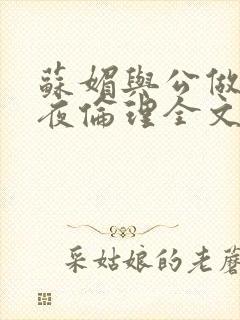 蘇媚與公做
夜倫理全文
采姑娘的老蘑